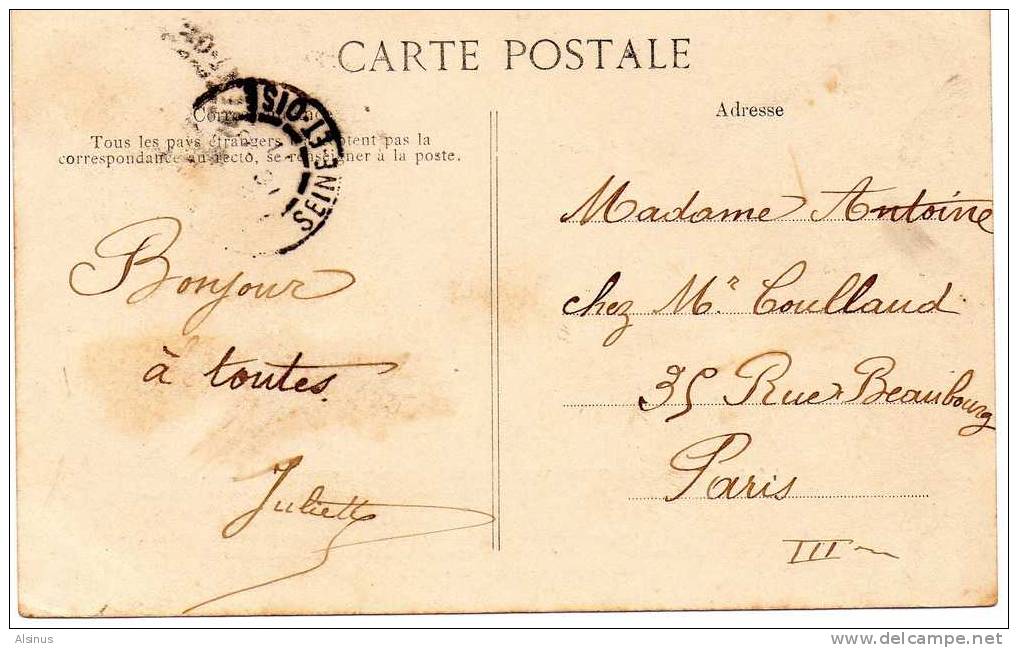 CARTE POSTALE
Correspondance
Tous les pays étrangers n'acceptent pas la
correspondance au recto, se renseigner à la poste.
SEINE-ET-OIS
Bonjour
à toutes
Juliette
Adresse
Madame Antoine
chez Mr. Coulland
35 Rue Beaubourg
Paris
III
Alsinus
delcampe.net